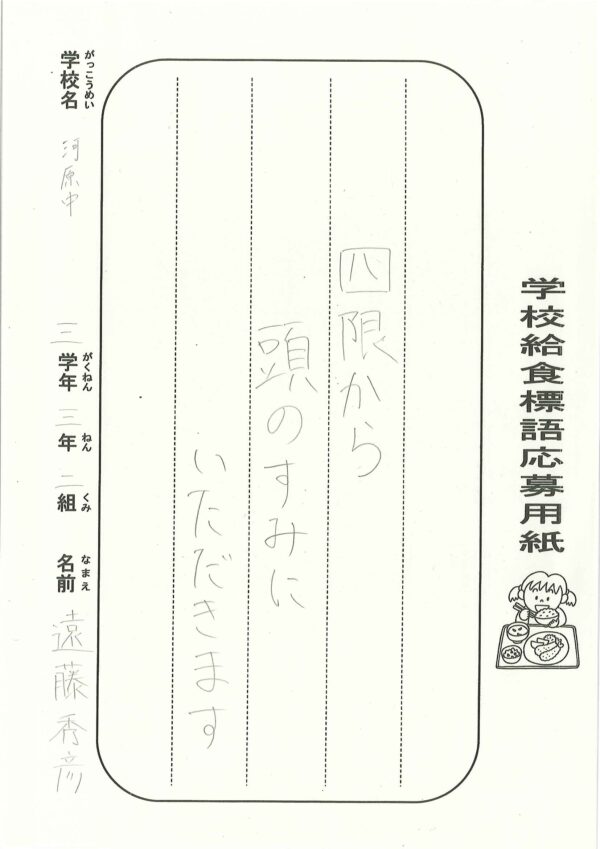 学校給食標語応募用紙
四限から
頭のすみに
いただきます
学校名 河原中
がっこうめい
三学年 三年 二組 名前 遠藤秀彦
がくねん ねん くみ なまえ